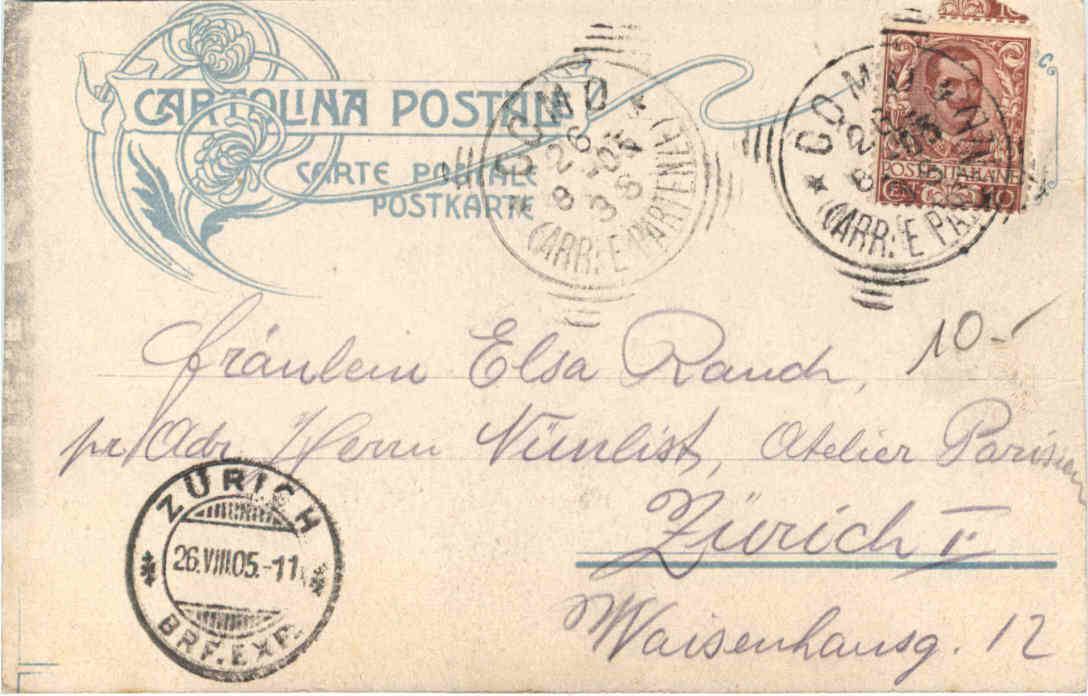 CARTOLINA POSTALE
CARTE POSTALE
POSTKARTE
COMO
26 8 05
(ARR: E PARTENZA)
COMO
(ARR: E PA
POSTE ITALIANE
10-
Fräulein Elsa Rauch,
pr. Adr. Herrn Nünlist, Atelier Parisien
Zürich I
Waisenhausg. 12
ZÜRICH
26.VIII.05.-11
BRF.EXP.